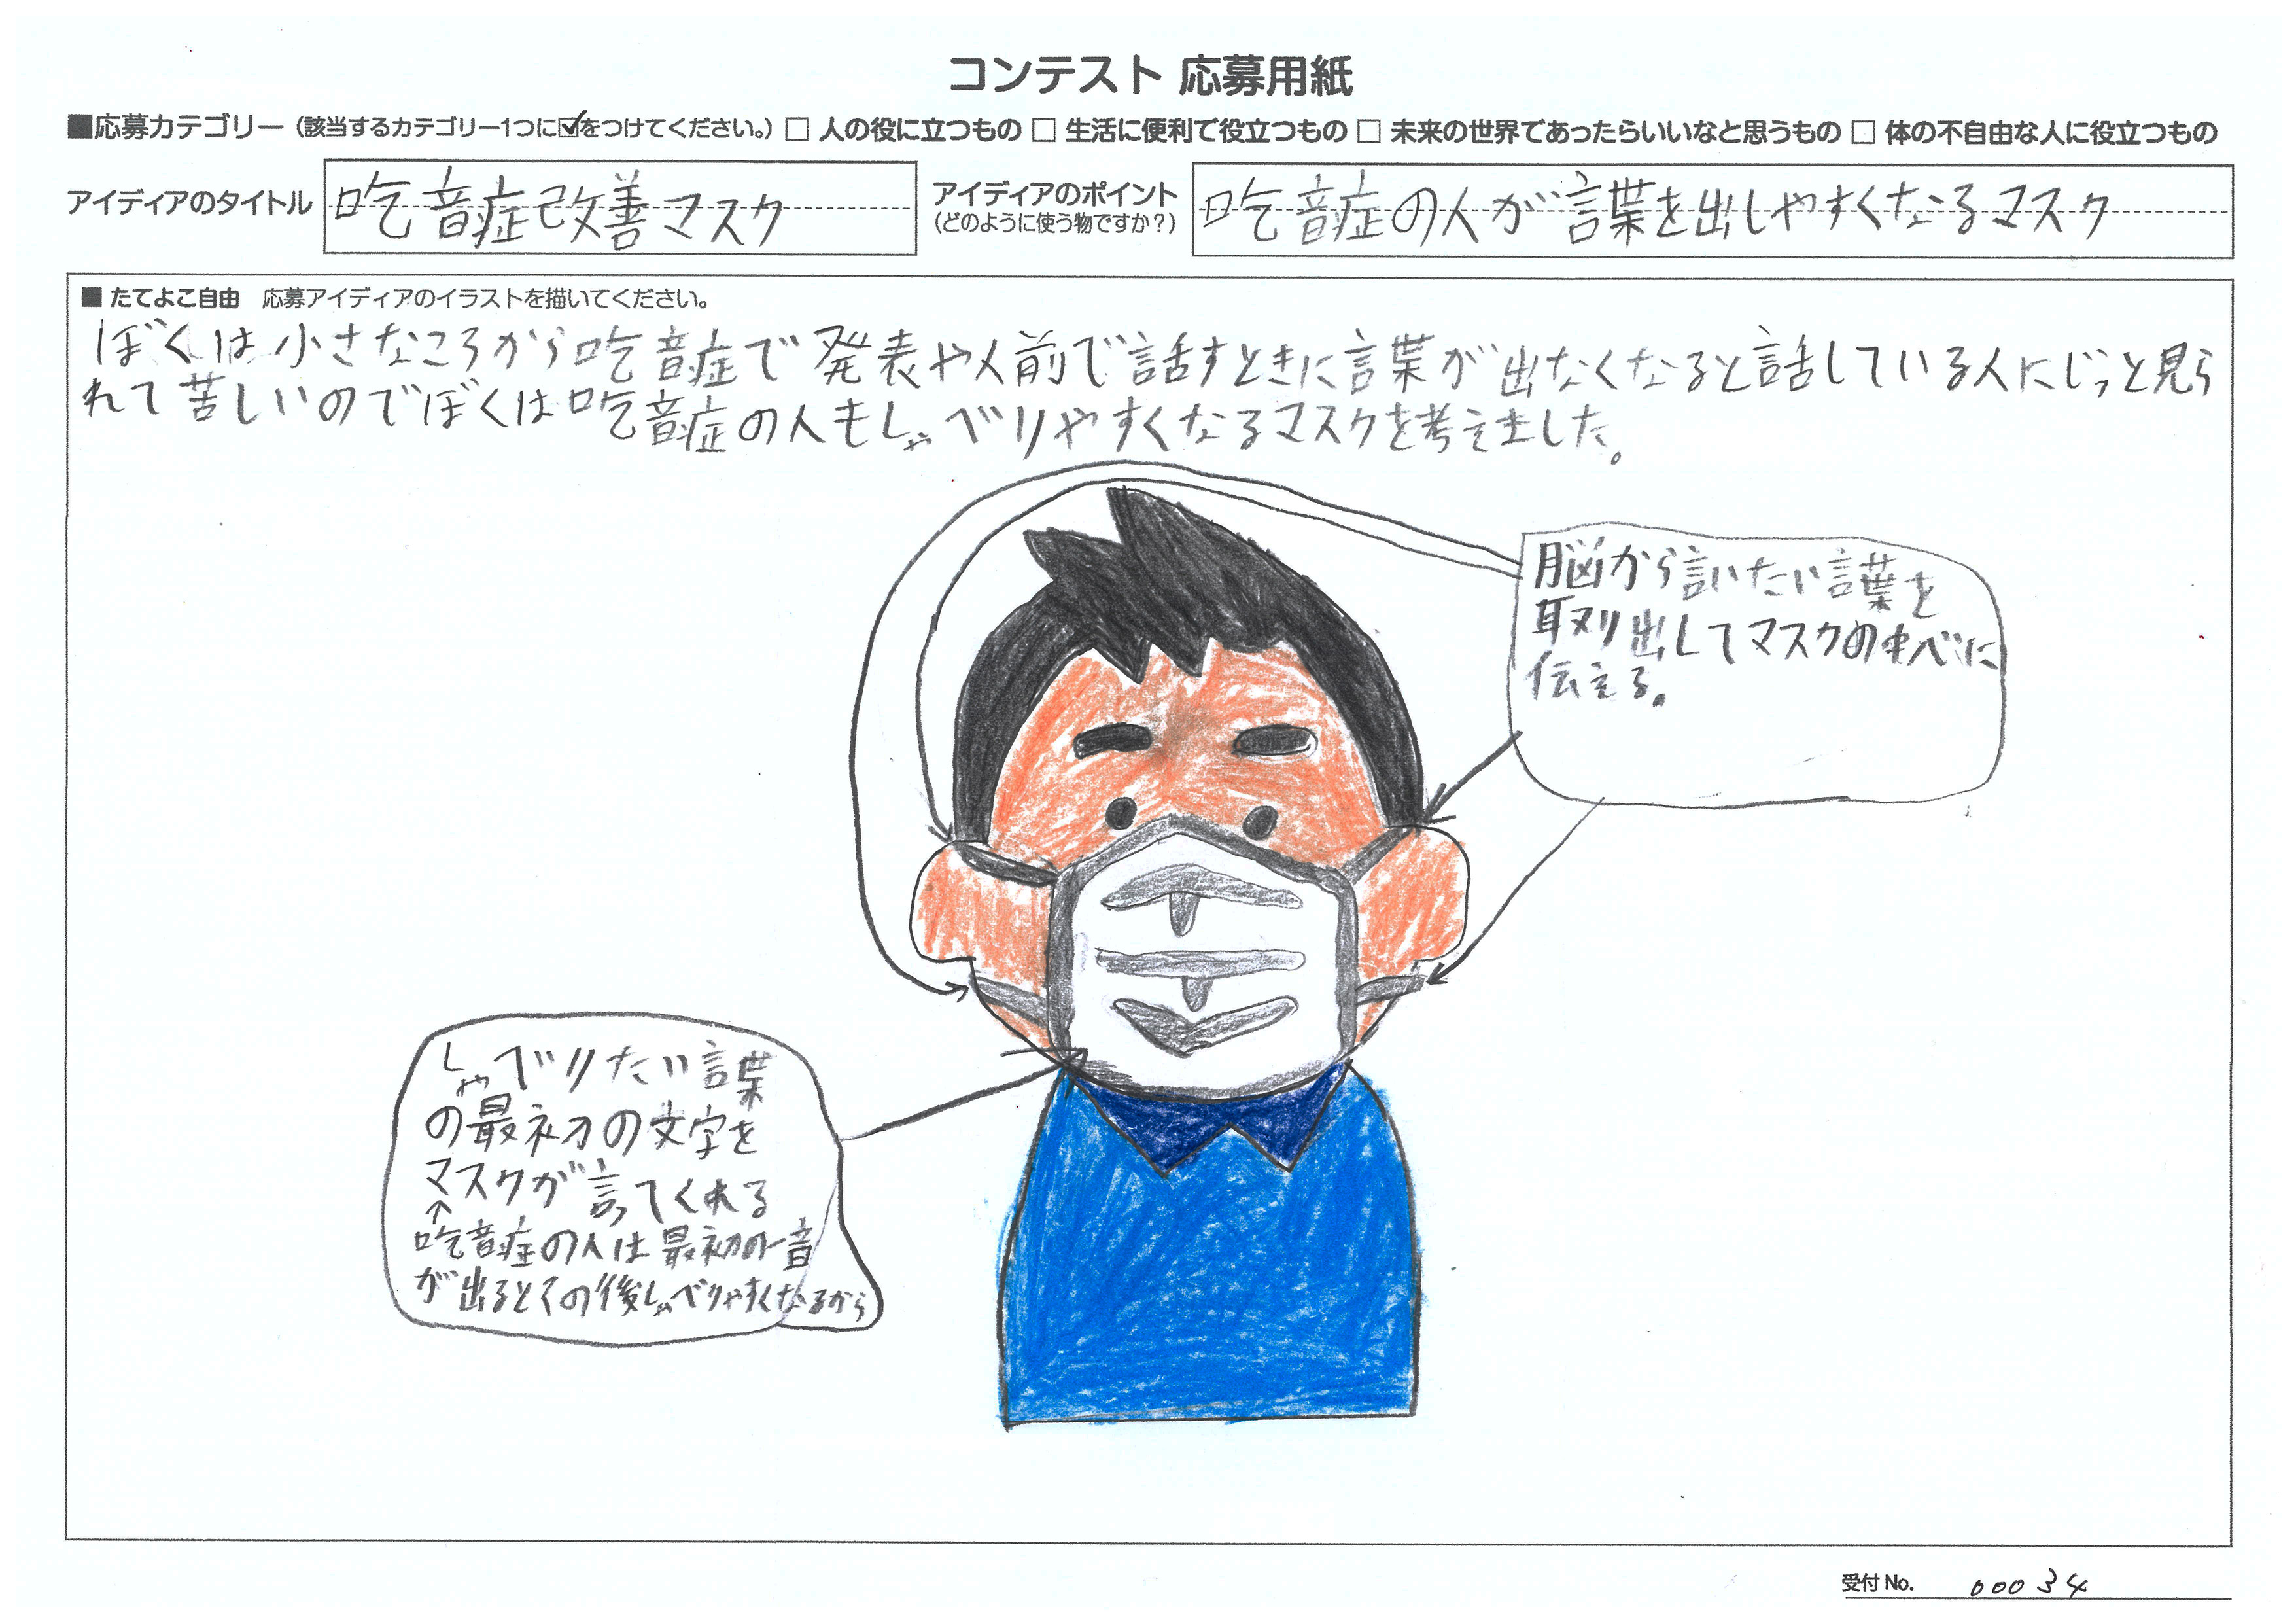 コンテスト 応募用紙
■応募カテゴリー（該当するカテゴリー1つに☑をつけてください。）□ 人の役に立つもの □ 生活に便利で役立つもの □ 未来の世界であったらいいなと思うもの □ 体の不自由な人に役立つもの
アイディアのタイトル
吃音症改善マスク
アイディアのポイント
（どのように使う物ですか？）
吃音症の人が言葉を出しやすくなるマスク
■ たてよこ自由 応募アイディアのイラストを描いてください。
ぼくは小さなころから吃音症で発表や人前で話すときに言葉が出なくなると話している人にじっと見ら
れて苦しいのでぼくは吃音症の人もしゃべりやすくなるマスクを考えました。
脳から言いたい言葉を
取り出してマスクの
伝える。
しゃべりたい言葉
の最初の文字を
マスクが言ってくれる
↑
吃音症の人は最初の一音
が出るとその後しゃべりやすくなるから
受付 No. 00034